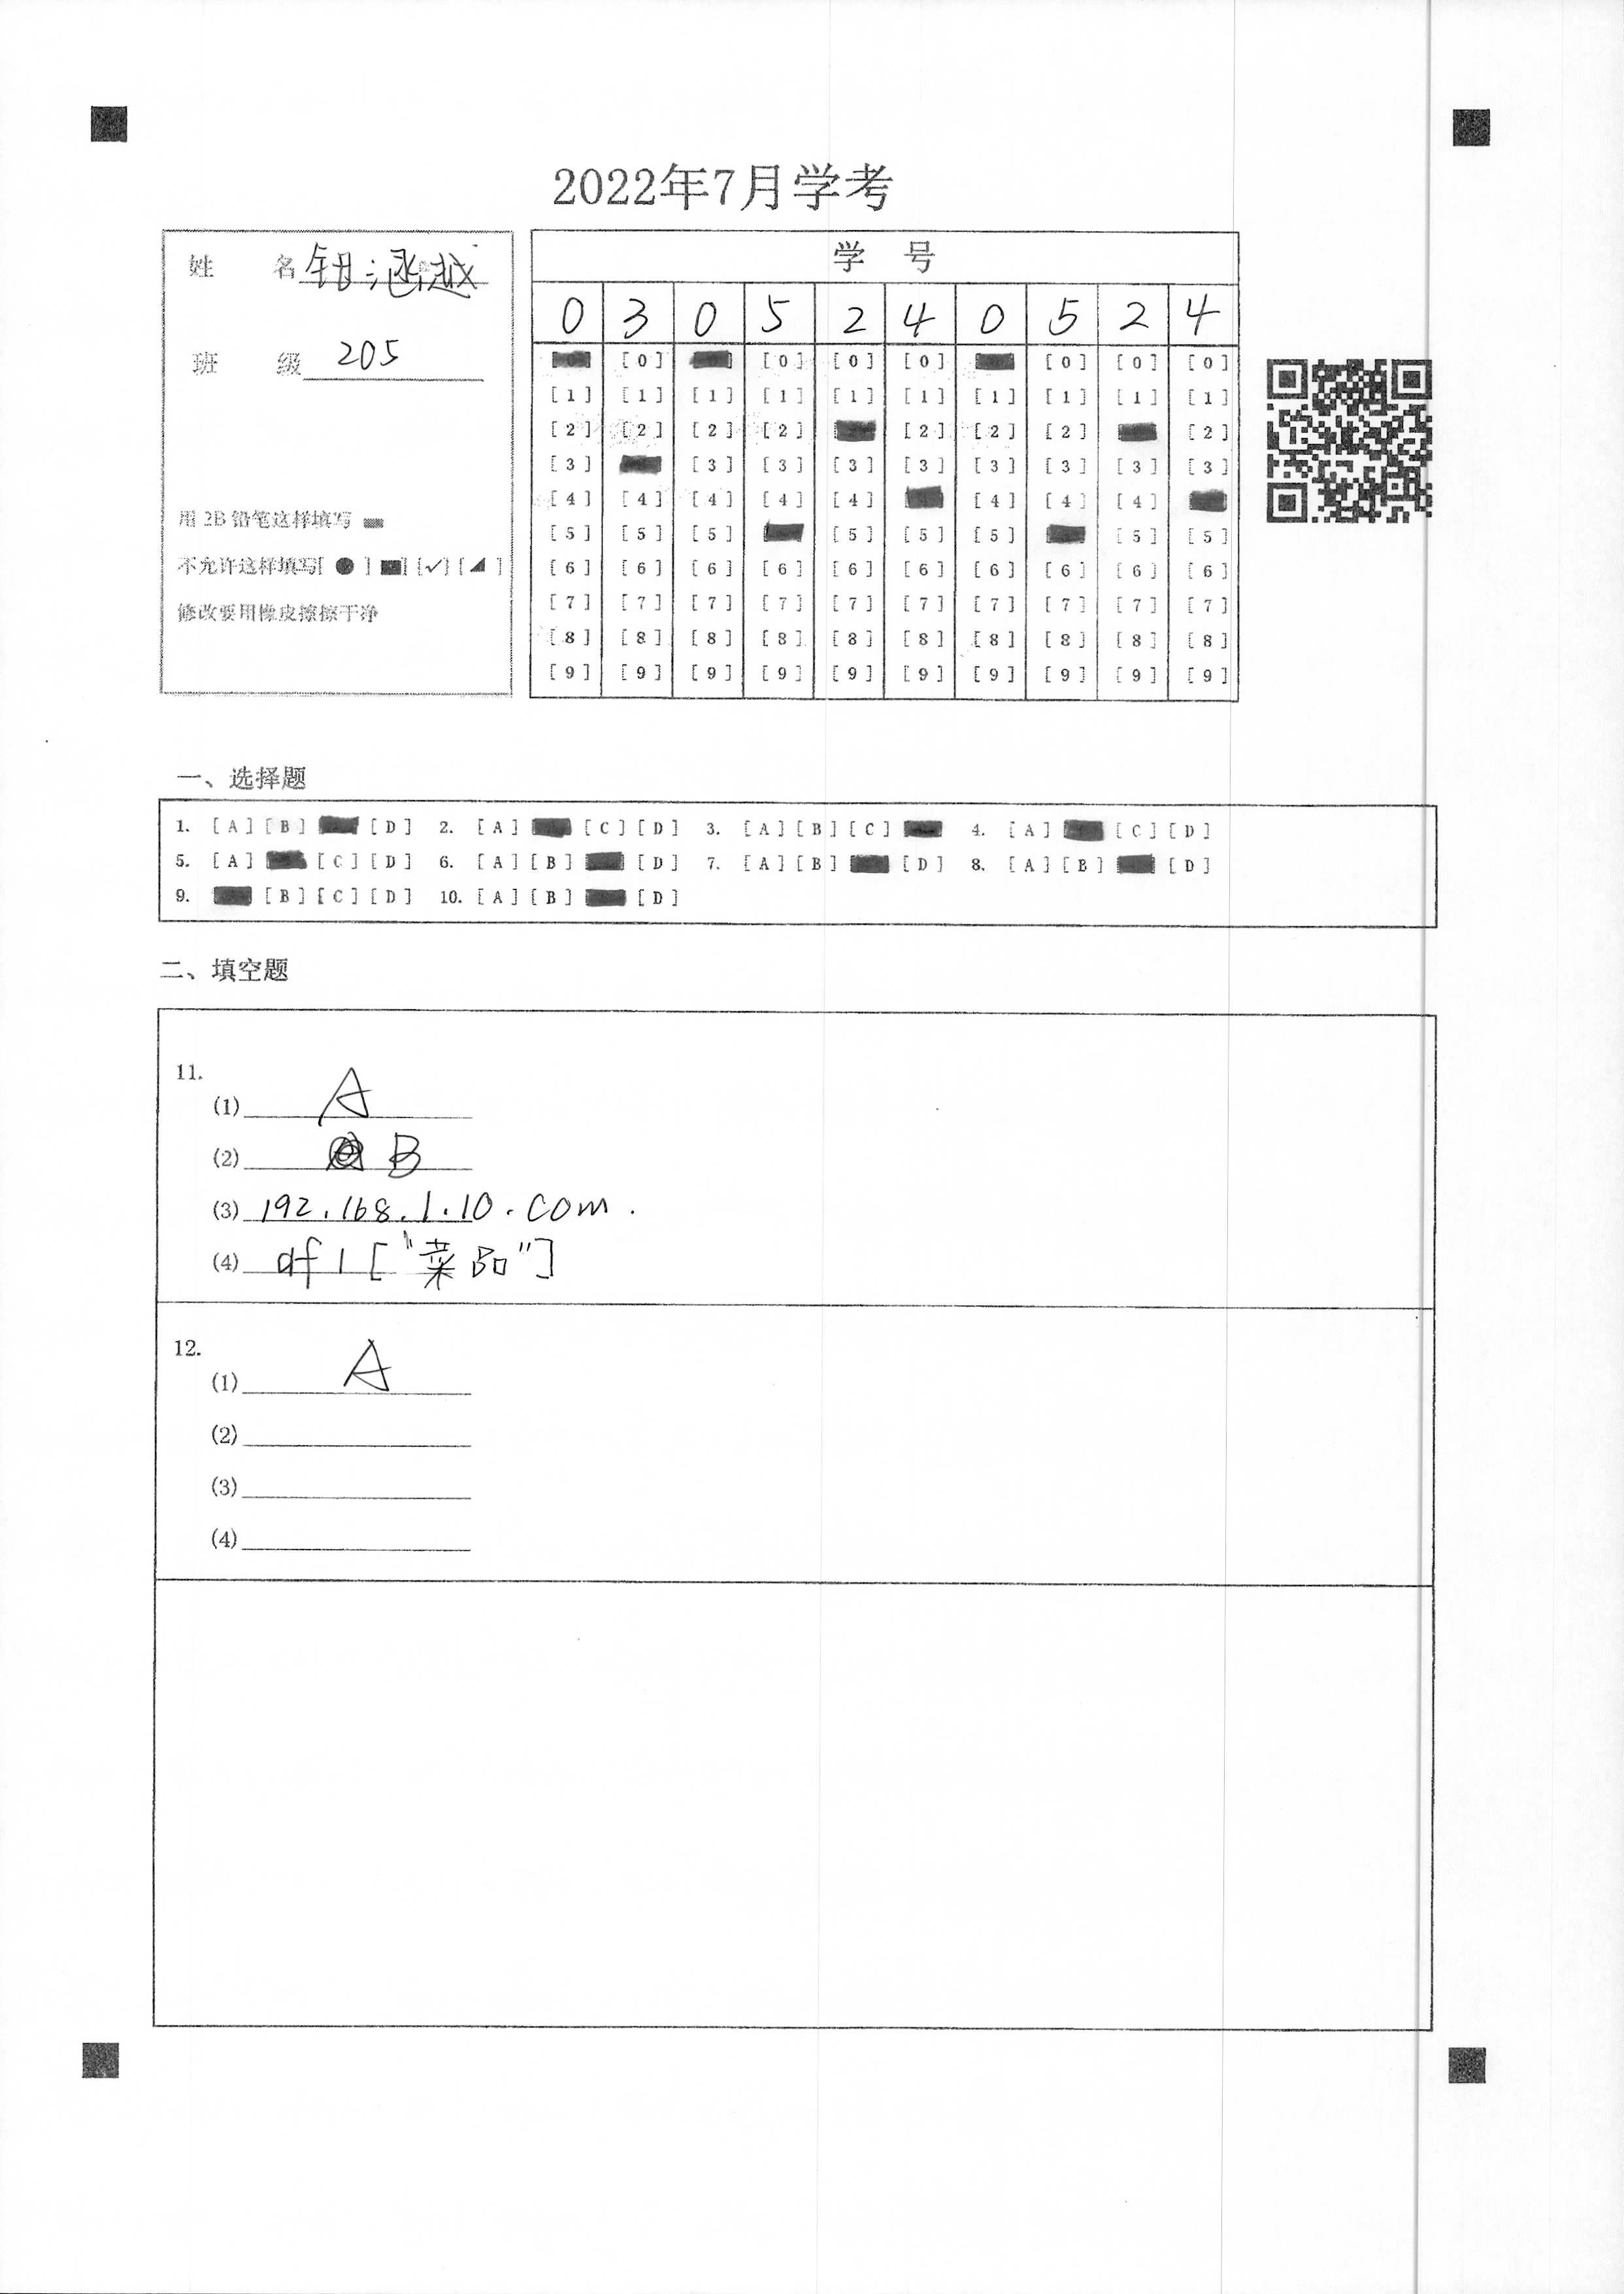 2022年7月学考
姓 名 钼涵越
班 级 205
用 2B 铅笔这样填写
不允许这样填写[ ● ] [✓] [ ]
修改要用橡皮擦擦干净
学 号
0 3 0 5 2 4 0 5 2 4
[0] [0] [0] [0] [0] [0] [0]
[1] [1] [1] [1] [1] [1] [1] [1] [1] [1]
[2] [2] [2] [2] [2] [2] [2] [2]
[3] [3] [3] [3] [3] [3] [3] [3] [3]
[4] [4] [4] [4] [4] [4] [4] [4]
[5] [5] [5] [5] [5] [5] [5] [5]
[6] [6] [6] [6] [6] [6] [6] [6] [6] [6]
[7] [7] [7] [7] [7] [7] [7] [7] [7] [7]
[8] [8] [8] [8] [8] [8] [8] [8] [8] [8]
[9] [9] [9] [9] [9] [9] [9] [9] [9] [9]
一、选择题
1. [A] [B] [D] 2. [A] [C] [D] 3. [A] [B] [C] 4. [A] [C] [D]
5. [A] [C] [D] 6. [A] [B] [D] 7. [A] [B] [D] 8. [A] [B] [D]
9. [B] [C] [D] 10. [A] [B] [D]
二、填空题
11.
(1) A
(2) B
(3) 192.168.1.10.com.
(4) df1["菜品"]
12.
(1) A
(2)
(3)
(4)